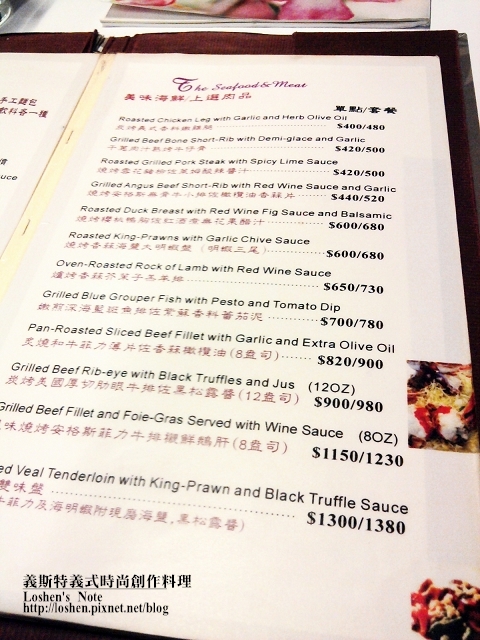 手工麵包
The Seafood & Meat
美味海鮮/上選肉品
單點/套餐
Roasted Chicken Leg with Garlic and Herb Olive Oil
炭烤義式香料嫩雞腿 $400/480
Grilled Beef Bone Short-Rib with Demi-glace and Garlic
$420/500
Roasted Grilled Pork Steak with Spicy Lime Sauce
$420/500
Grilled Angus Beef Short-Rib with Red Wine Sauce and Garlic
$440/520
Roasted Duck Breast with Red Wine Fig Sauce and Balsamic
$600/680
Roasted King-Prawns with Garlic Chive Sauce
燒烤香蒜海鹽大明蝦盤 (明蝦三尾) $600/680
Oven-Roasted Rock of Lamb with Red Wine Sauce
爐烤香蒜芥茉子羔羊排 $650/730
Grilled Blue Grouper Fish with Pesto and Tomato Dip
$700/780
Pan-Roasted Sliced Beef Fillet with Garlic and Extra Olive Oil
炙燒和牛菲力薄片佐香蒜橄欖油(8盎司) $820/900
Grilled Beef Rib-eye with Black Truffles and Jus (12OZ)
炭烤美國厚切肋眼牛排佐黑松露醬(12盎司) $900/980
Grilled Beef Fillet and Foie-Gras Served with Wine Sauce (8OZ)
風味燒烤安格斯菲力牛排襯鮮鵝肝(8盎司) $1150/1230
Veal Tenderloin with King-Prawn and Black Truffle Sauce
雙味盤 $1300/1380
義斯特義式時尚創作料理
Loshen's Note
http://loshen.pixnet.net/blog